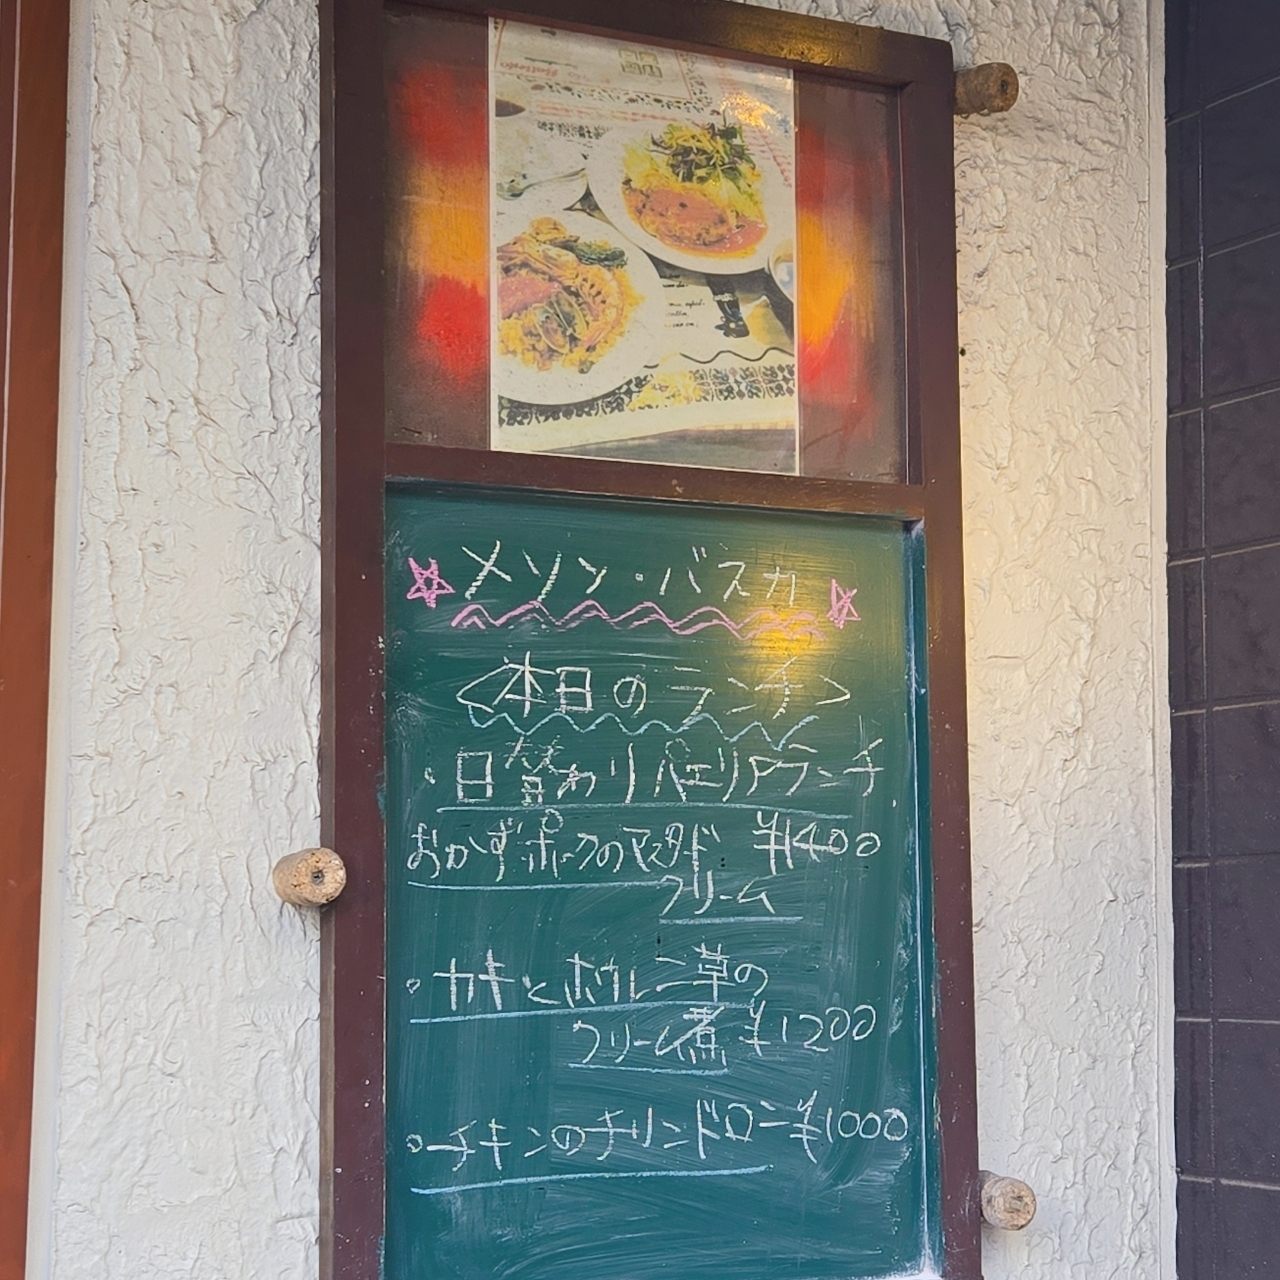 メソン・バスカ
<本日のランチ>
・日替わりパエリアランチ
おかずポークのマスタード ¥1400
クリーム
・カキとホウレン草の
クリーム煮 ¥1200
・チキンのチリンドロン ¥1000